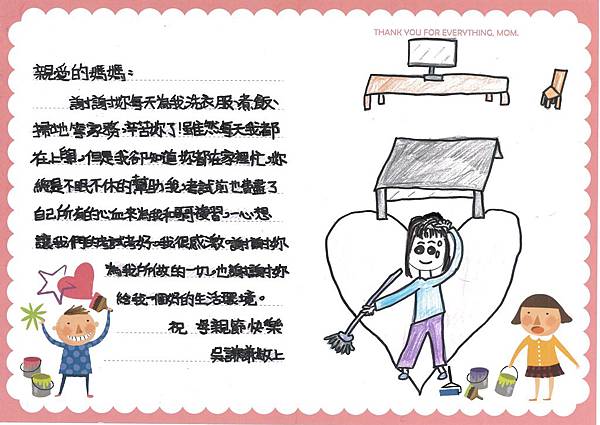 THANK YOU FOR EVERYTHING, MOM.
親愛的媽媽：
謝謝妳每天為我洗衣服、煮飯、
掃地等家務，辛苦妳了！雖然每天我都
在上學，但是我卻知道妳都在家裡忙。妳
總是不眠不休的幫助我，考試前也費盡了
自己所有的心血來為我和哥複習，一心想
讓我們的考試考好。我很感激。謝謝妳
為我所做的一切，也謝謝妳
給我一個好的生活環境。
祝 母親節快樂
吳謙敬上